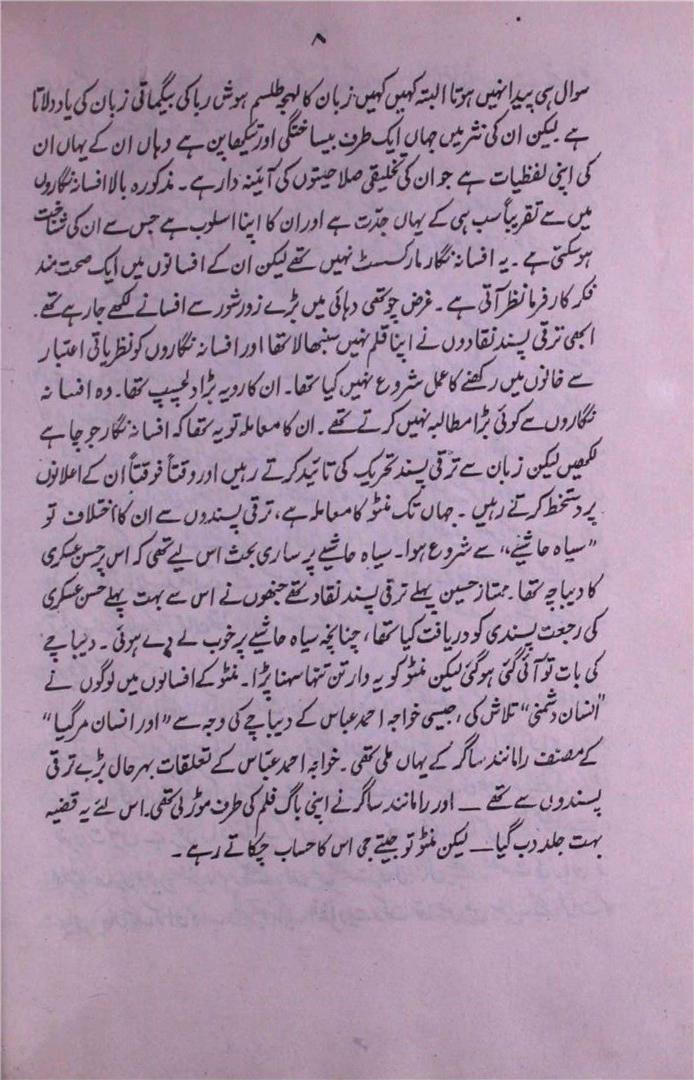 ۸
سوال ہی پیدا نہیں ہوتا البتہ کہیں کہیں زبان کا لہجہ طلسم ہوش ربا کی بیگماتی زبان کی یاد دلاتا
ہے لیکن ان کی نثر میں جہاں ایک طرف بیساختگی اور تیکھا پن ہے وہاں ان کے یہاں ان
کی اپنی لفظیات ہے جو ان کی تخلیقی صلاحیتوں کی آئینہ دار ہے۔ مذکورہ بالا افسانہ نگاروں
میں سے تقریباً سب ہی کے یہاں جدّت ہے اور ان کا اپنا اسلوب ہے جس سے ان کی شناخت
ہو سکتی ہے۔ یہ افسانہ نگار مارکسسٹ نہیں تھے لیکن ان کے افسانوں میں ایک صحت مند
فکر کارفرما نظر آتی ہے۔ غرض چوتھی دہائی میں بڑے زور شور سے افسانے لکھے جا رہے تھے۔
ابھی ترقی پسند نقادوں نے اپنا قلم نہیں سنبھالا تھا اور افسانہ نگاروں کو نظریاتی اعتبار
سے خانوں میں رکھنے کا عمل شروع نہیں کیا تھا۔ ان کا رویہ بڑا دلچسپ تھا۔ وہ افسانہ
نگاروں سے کوئی بڑا مطالبہ نہیں کرتے تھے۔ ان کا معاملہ تو یہ تھا کہ افسانہ نگار جو چاہے
لکھیں لیکن زبان سے ترقی پسند تحریک کی تائید کرتے رہیں اور وقتاً فوقتاً ان کے اعلانوں
پر دستخط کرتے رہیں۔ جہاں تک منٹو کا معاملہ ہے، ترقی پسندوں سے ان کا اختلاف تو
”سیاہ حاشیئے“ سے شروع ہوا۔ سیاہ حاشیئے پر ساری بحث اس لیے تھی کہ اس پر حسن عسکری
کا دیباچہ تھا۔ ممتاز حسین پہلے ترقی پسند نقاد تھے جنھوں نے اس سے بہت پہلے حسن عسکری
کی رجعت پسندی کو دریافت کیا تھا، چنانچہ سیاہ حاشیئے پر خوب لے دے ہوئی۔ دیباچے
کی بات تو آئی گئی ہو گئی لیکن منٹو کو یہ وار تن تنہا سہنا پڑا۔ منٹو کے افسانوں میں لوگوں نے
”انسان دشمنی“ تلاش کی، جیسی خواجہ احمد عباس کے دیباچے کی وجہ سے ”اور انسان مر گیا“
کے مصنف رامانند ساگر کے یہاں ملی تھی۔ خواجہ احمد عبّاس کے تعلقات بہرحال بڑے ترقی
پسندوں سے تھے — اور رامانند ساگر نے اپنی باگ فلم کی طرف موڑ لی تھی۔ اس لئے یہ قضیہ
بہت جلد دب گیا — لیکن منٹو تو جیتے جی اس کا حساب چکاتے رہے۔